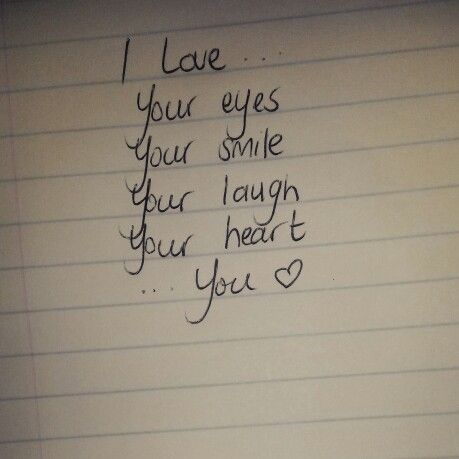 I Love ...
Your eyes
Your smile
Your laugh
Your heart
... You ♡